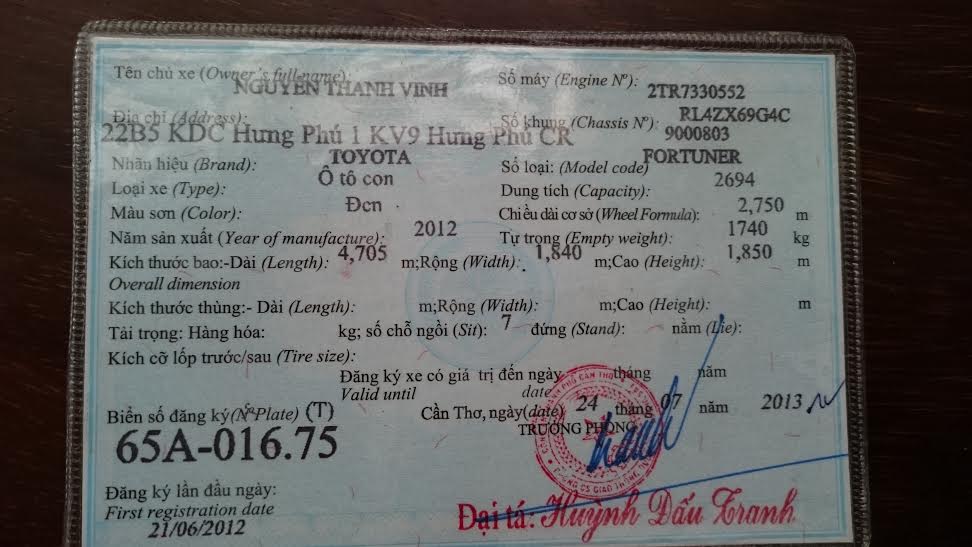 Tên chủ xe (Owner's full name): NGUYỄN THANH VINH
Số máy (Engine Nº): 2TR7330552
Địa chỉ (Address): 22B5 KDC Hưng Phú 1 KV9 Hưng Phú CR
Số khung (Chassis Nº): RL4ZX69G4C
9000803
Nhãn hiệu (Brand): TOYOTA
Số loại: (Model code) FORTUNER
Loại xe (Type): Ô tô con
Dung tích (Capacity): 2694
Màu sơn (Color): Đcn
Chiều dài cơ sở (Wheel Formula): 2,750 m
Năm sản xuất (Year of manufacture): 2012
Tự trọng (Empty weight): 1740 kg
Kích thước bao:-Dài (Length): 4,705 m;Rộng (Width): 1,840 m;Cao (Height): 1,850 m
Overall dimension
Kích thước thùng:- Dài (Length): m;Rộng (Width): m;Cao (Height): m
Tải trọng: Hàng hóa: kg; số chỗ ngồi (Sit): 7 đứng (Stand): nằm (Lie):
Kích cỡ lốp trước/sau (Tire size):
Đăng ký xe có giá trị đến ngày tháng năm
Valid until date
Biển số đăng ký(Nº Plate) (T)
Cần Thơ, ngày(date) 24 tháng 07 năm 2013
TRƯỞNG PHÒNG
65A-016.75
Đăng ký lần đầu ngày:
First registration date
21/06/2012
Đại tá: Huỳnh Dấu Tranh